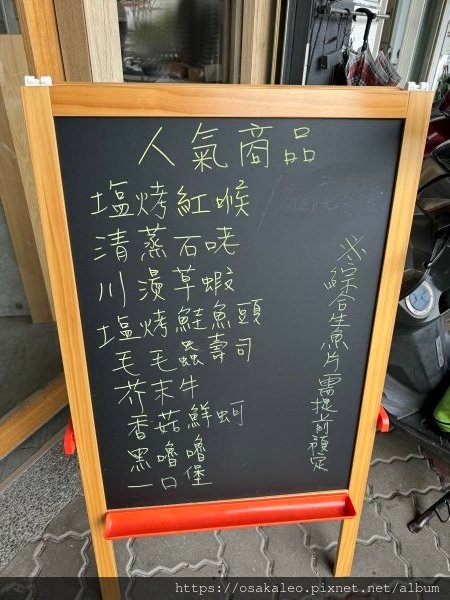 人氣商品
塩烤紅喉
清蒸石咾
川漫草蝦
塩烤鮭魚頭
毛毛蟲壽司
芥末牛
香菇鮮蚵
黑嚕嚕
一口堡
※綜合生魚片需提前預定
https://osakaleo.pixnet.net/album